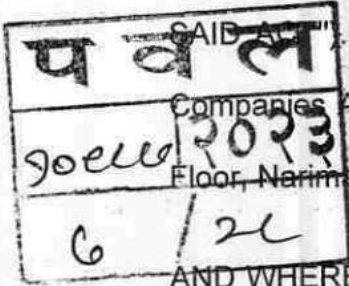 SAID ACT").
प व ल
Companies A
२०२३
Floor, Narim
/ २८
AND WHERE